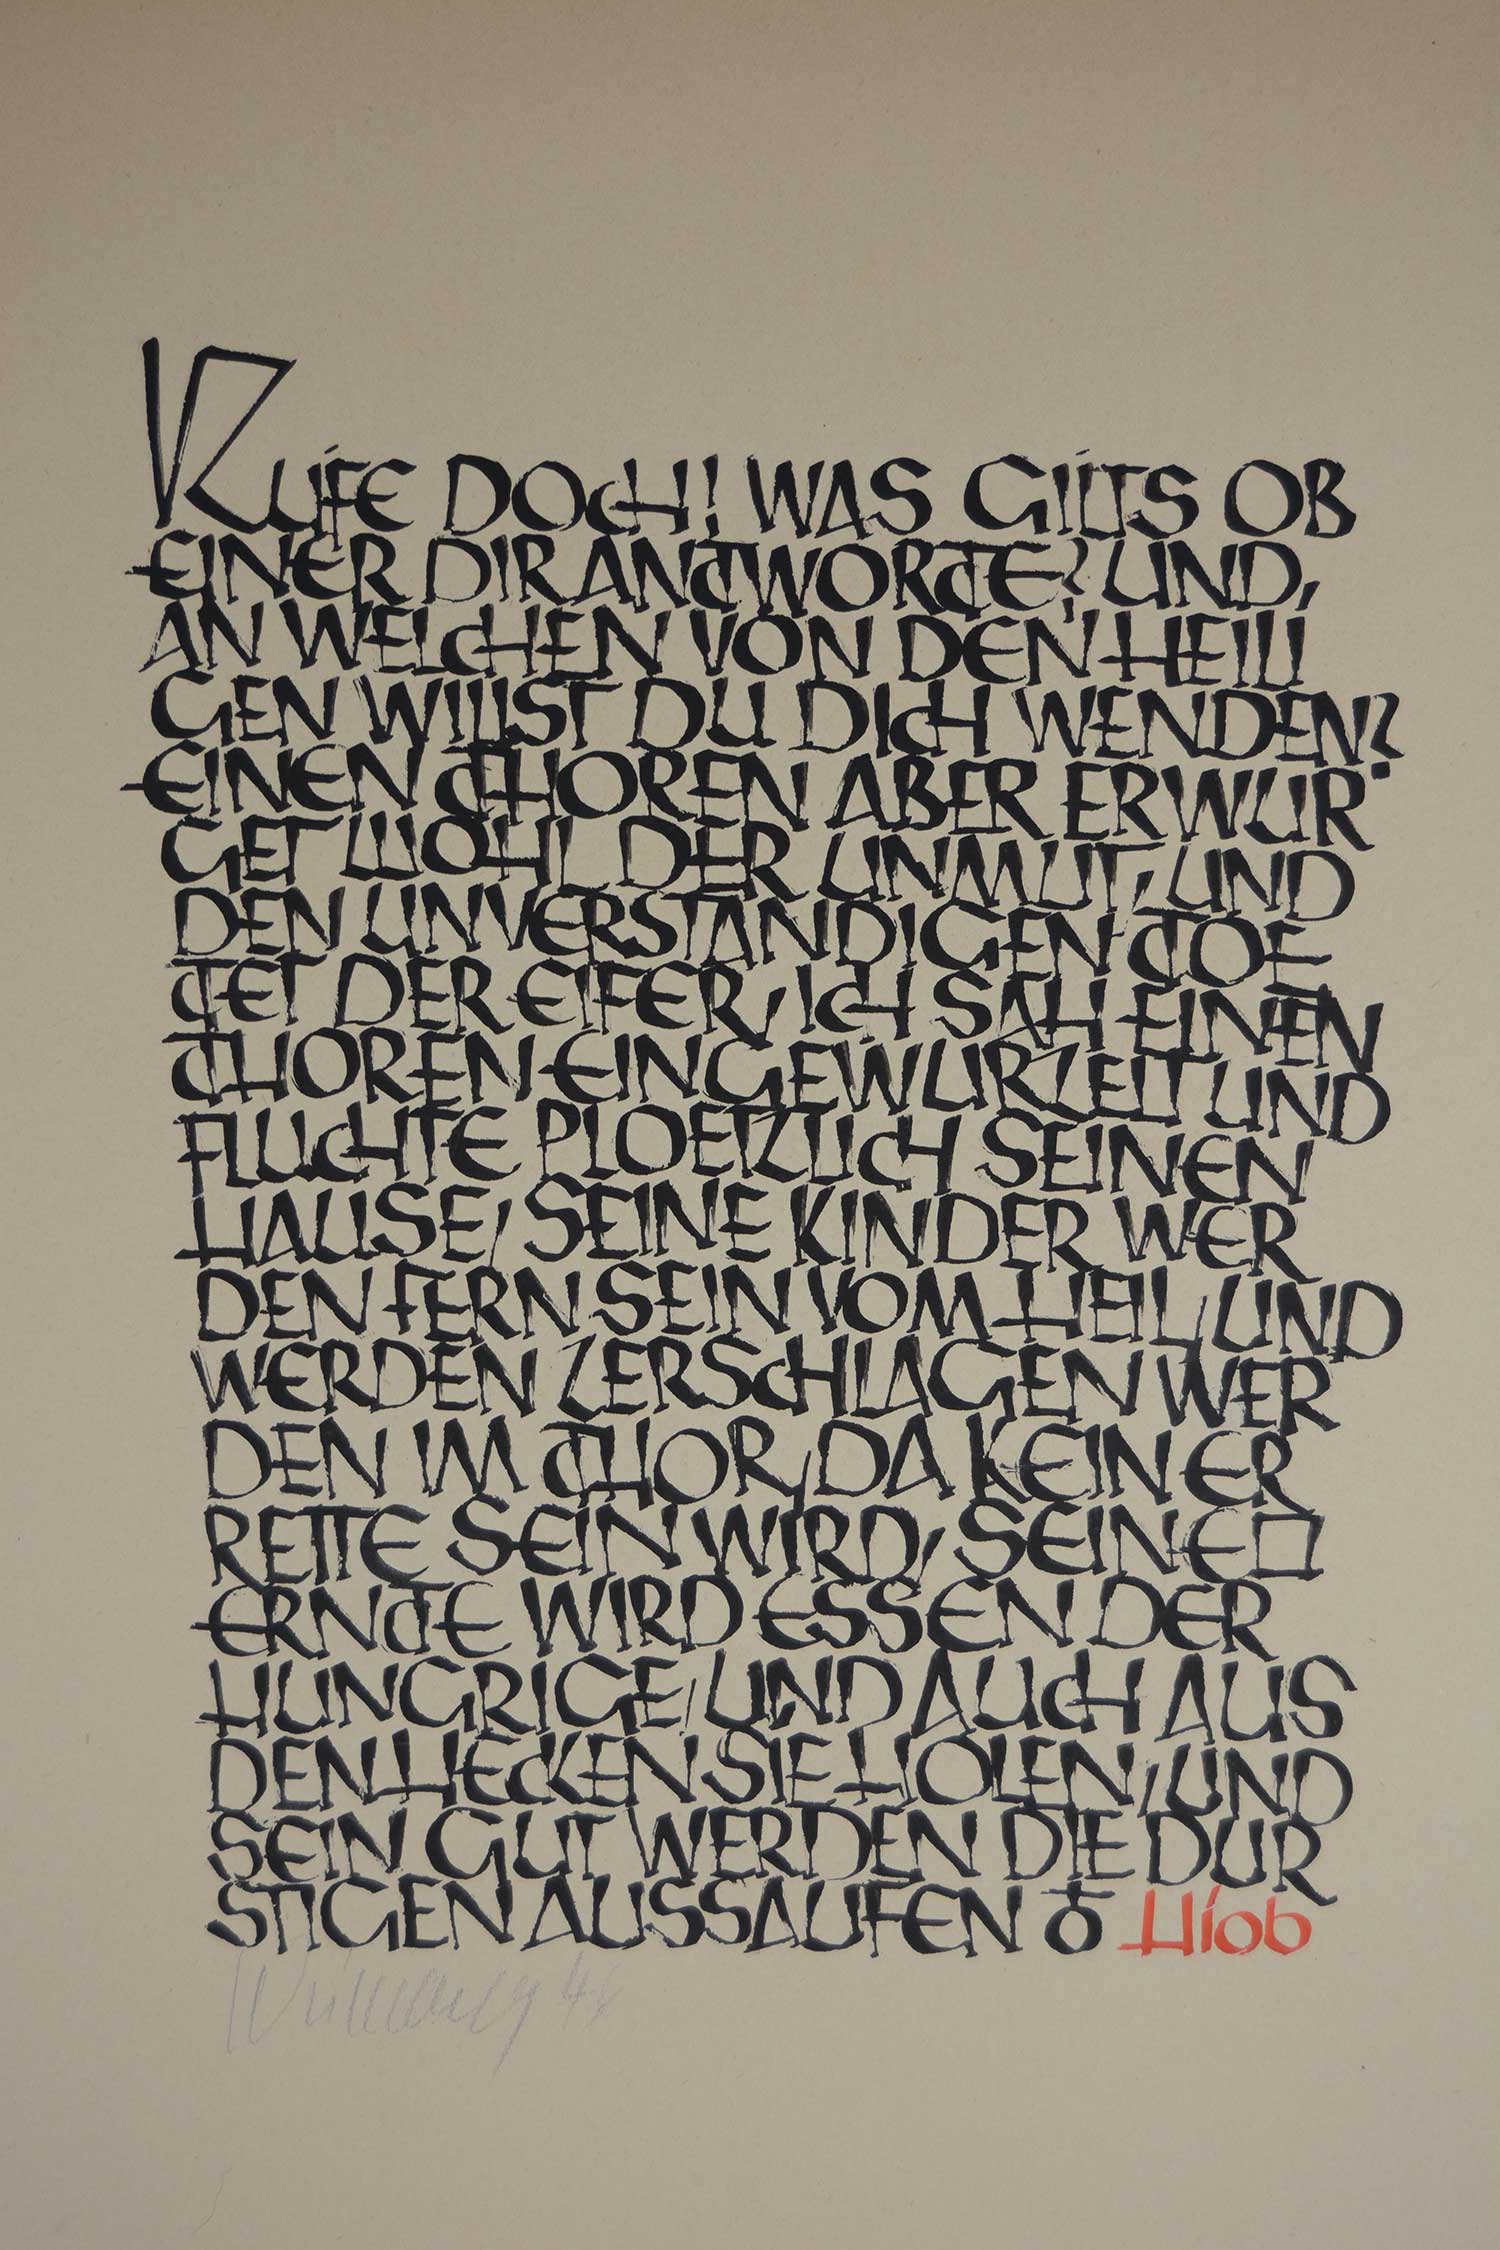 RUFE DOCH! WAS GILTS OB
EINER DIR ANTWORTE? UND,
AN WELCHEN VON DEN HEILI
GEN WILLST DU DICH WENDEN?
EINEN THOREN ABER ERWUR
GET WOHL DER UNMUT, UND
DEN UNVERSTANDIGEN TOE
TET DER EIFER, ICH SAH EINEN
THOREN EINGEWURZELT UND
FLUCHTE PLOETZLICH SEINEN
HAUSE, SEINE KINDER WER
DEN FERN SEIN VOM HEIL, UND
WERDEN ZERSCHLAGEN WER
DEN IM THOR, DA KEIN ER
RETTE SEIN WIRD, SEINE
ERNTE WIRD ESSEN DER
HUNGRIGE, UND AUCH AUS
DEN HECKEN SIE HOLEN, UND
SEIN GUT WERDEN DIE DUR
STIGEN AUSSAUFEN Hiob